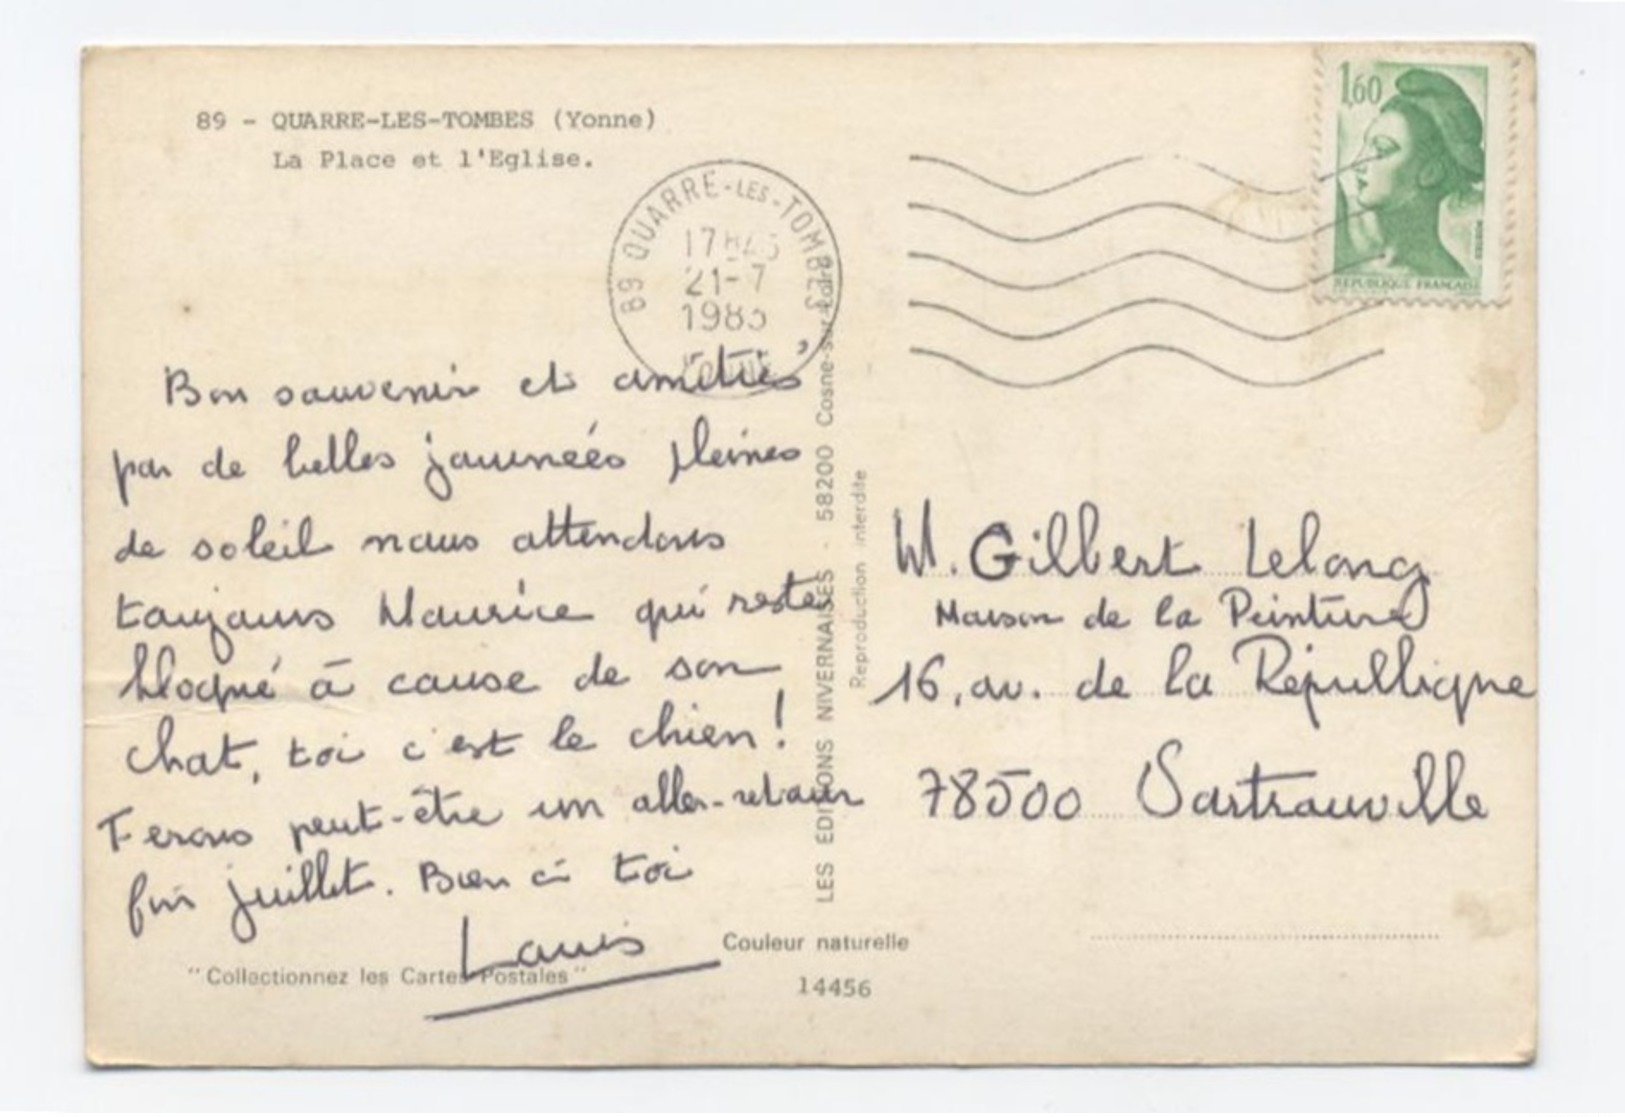 89 - QUARRE-LES-TOMBES (Yonne)
La Place et l'Eglise.
89 QUARRE-LES-TOMBES
21-7
Bon souvenir et amitiés
par de belles journées pleines
de soleil nous attendons
toujours Maurice qui reste
bloqué à cause de son
chat, toi c'est le chien!
Ferons peut-être un aller-retour
fin juillet. Bien à toi
Louis
"Collectionnez les Cartes Postales"
LES EDITIONS NIVERNAISES - 58200 Cosne-sur-Loire
Reproduction interdite
Couleur naturelle
14456
1,60
REPUBLIQUE FRANCAISE
M. Gilbert Lelong
Maison de la Peinture
16, av. de la République
78500 Sartrouville